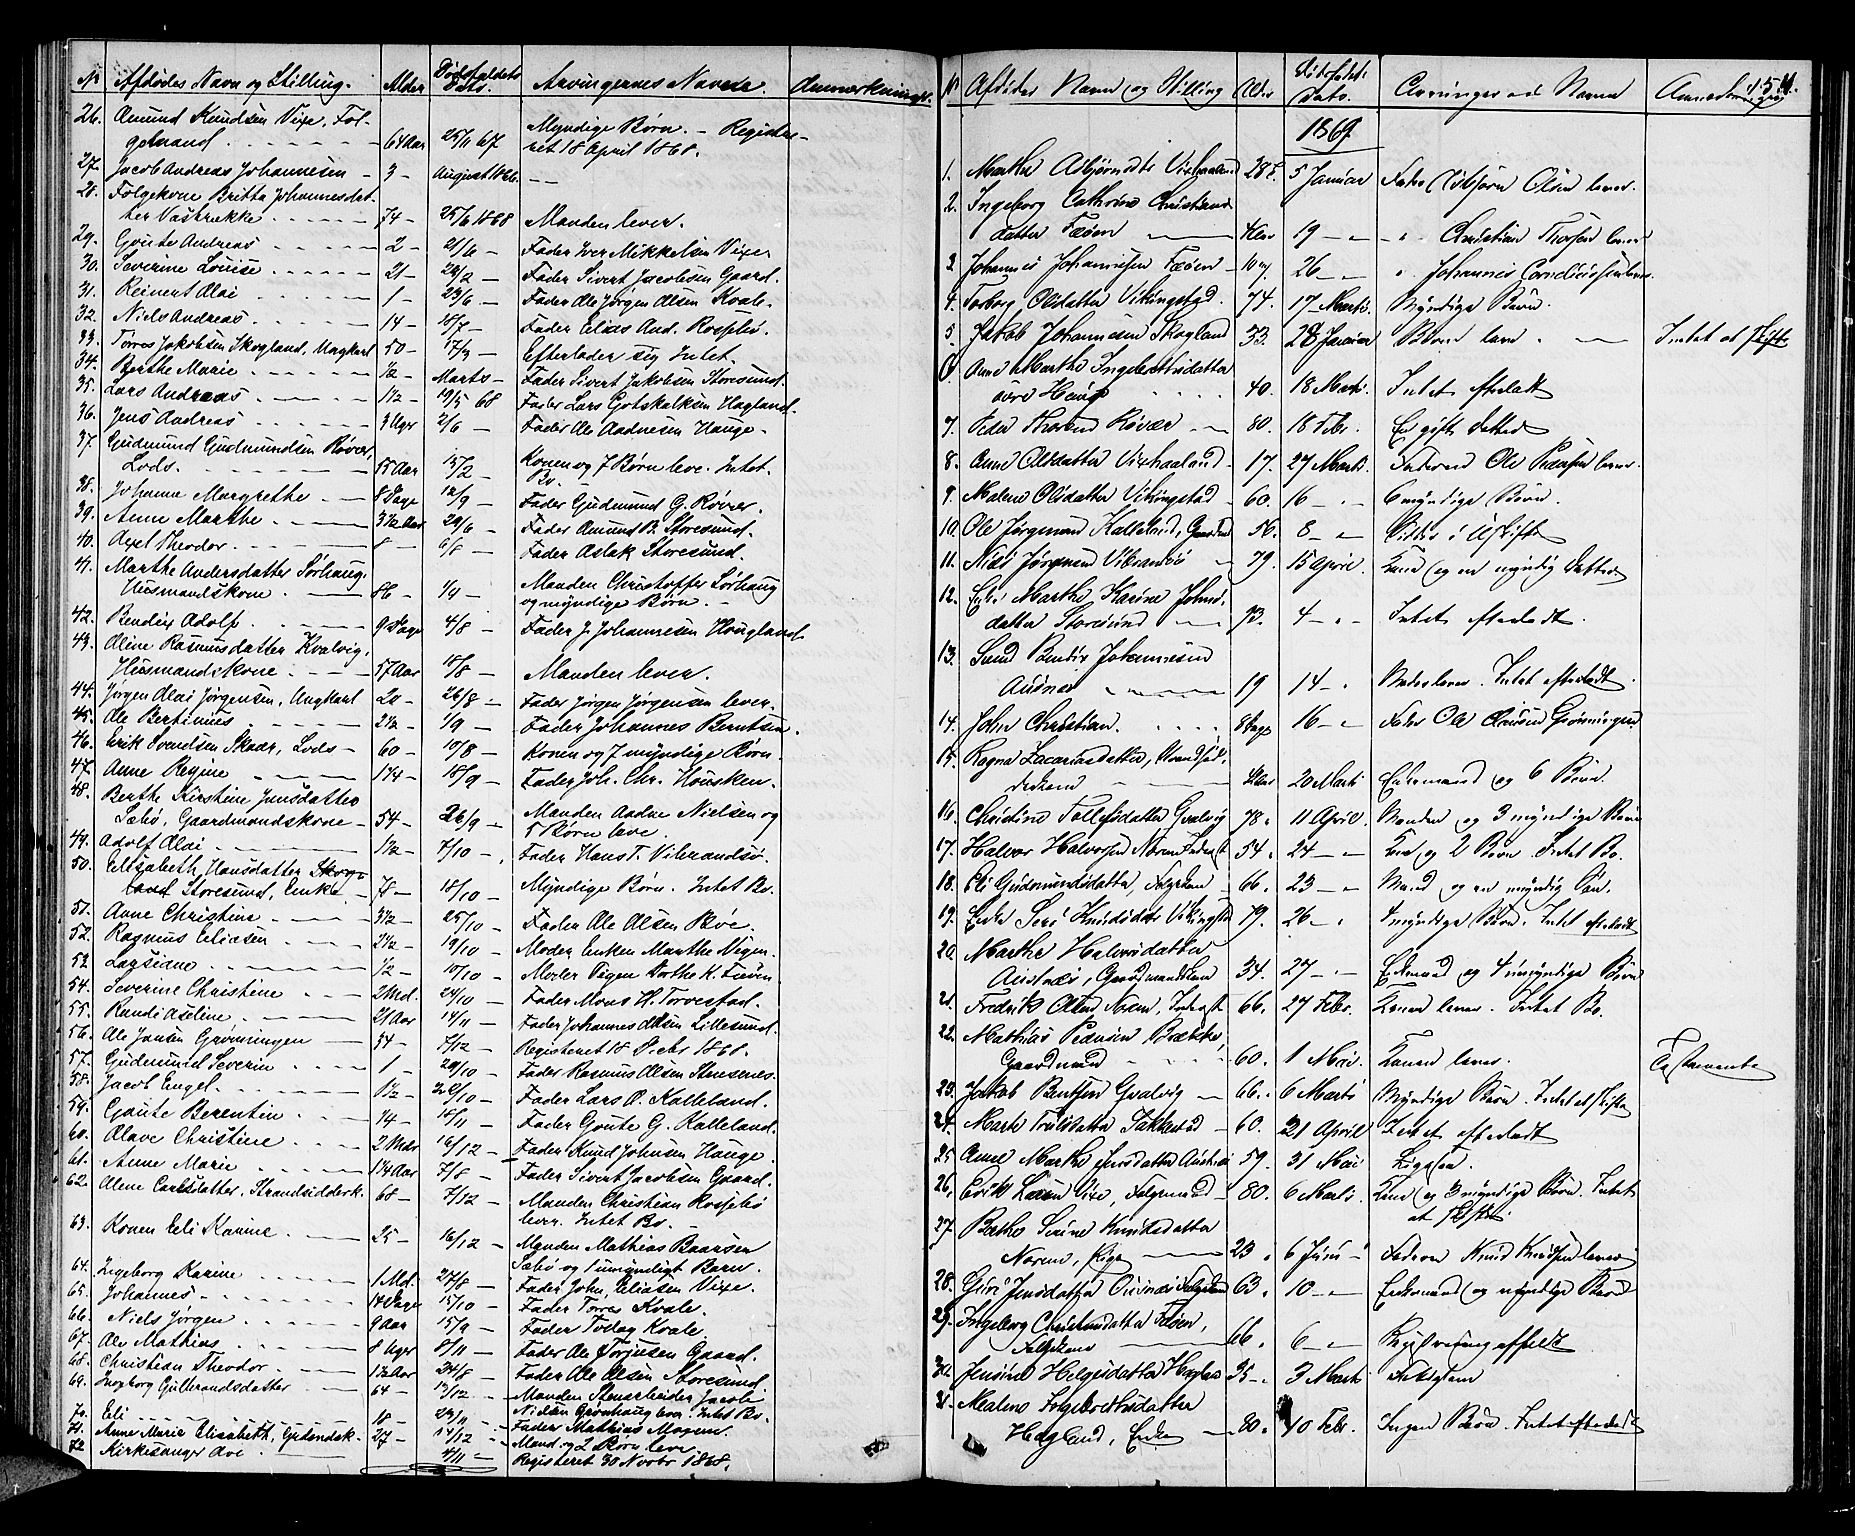 No Afdødes Navn og Stilling. Alder Dødsfaldets Dato. Arvingernes Navne Anmærkninger.
26. Amund Knudsen Vixe, Fol-
gemand 64 Aar 25/11 67 Myndige Børn. - Registe-
ret 18 April 1868.
27. Jacob Andreas Johannesen - 3 - August 1866. - -
28. Folgekone Britta Johannesdat-
ter Vastrække 74 - 25/6 1868 Manden lever.
29. Goute Andreas 2 - 21/6 - Fader Iver Mikkelsen Vixe
30. Severine Louise 21 - 24/2 - Fader Sivert Jacobsen Gaard.
31. Reinert Olai 1 - 23/6 - Fader Ole Jørgen Olsen Kvale.
32. Niels Andreas 14 - 18/7 - Fader Elias And. Rossebø.
33. Torres Jakobsen Skogland, Ungkarl 50 - 17/3 - Efterlader sig Intet.
34. Berthe Marie 1/2 - Marts - Fader Sivert Jakobsen Storesund.
35. Lars Andreas 1 1/2 - 19/5 68 Fader Lars Gotskalksen Hagland.
36. Jens Andreas 3 Uger 2/6 - Fader Ole Aadnesen Hauge.
37. Gudmund Gudmundsen Røver,
Lods. 55 Aar 15/2 - Konen og 7 Børn leve. Intet
Bo.
38. Johanne Margrethe 8 Dage 12/9 - Fader Gudmund G. Røver.
39. Anne Marthe 3 1/2 Aar 29/6 - Fader Amund B. Storesund.
40. Axel Theodor 8 - 6/8 - Fader Aslak Storesund.
41. Marthe Andersdatter Sørhaug.
Husmandskone 86 - 1/4 - Manden Christoffer Sørhaug
og myndige Børn. -
42. Bendix Adolf 9 Dage 4/8 - Fader J. Johannesen Hougland
43. Oline Rasmusdatter Kvalvig,
Husmandskone 57 Aar 18/8 - Manden lever.
44. Jørgen Olai Jørgensen, Ungkarl 20 - 26/8 - Fader Jørgen Jørgensen lever.
45. Ole Bertinius 2 1/2 - 1/9 - Fader Johannes Berntsen.
46. Erik Svendsen Skaar, Lods - 60 - 10/8 - Konen og 7 myndige Børn.
47. Anne Regine 1 1/4 - 18/9 - Fader Joh. Chr. Housken.
48. Berthe Kirstine Jensdatter
Sæbø, Gaardmandskone - 54 - 26/9 - Manden Aadne Nielsen og
5 Børn leve.
49. Adolf Olai 1 1/2 - 7/10 - Fader Hans T. Vibrandsø.
50. Elisabeth Hansdatter Skog-
land Storesund, Enke 78 - 18/10 - Myndige Børn. Intet Bo.
51. Anne Christine 3 1/2 - 25/10 - Fader Ole Olsen Bøe.
52. Rasmus Eliasen 2 1/2 - 19/10 - Moder Enken Marthe
53. Larsine 1/2 - 10/10 - Moder Pigen Dorthe K. Fæøen
54. Severine Christine 2 Md. 24/10 - Fader Mons H. Torvestad.
55. Randi Oseline 21 Aar 14/11 - Fader Johannes Olsen Lillesund.
56. Ole Jansen Grønningen 34 - 7/12 - Registeret 18 Decbr 1868.
57. Gudmund Severin 1 - 29/10 - Fader Rasmus Olsen Stensenes.
58. Jacob Engel. 1 1/2 - 26/10 - Fader Lars O. Kalleland.
59. Goute Berentin 14 - 15/11 - Fader Goute G. Kalleland.
60. Olave Christine 2 Mdr 16/12 - Fader Knud Johnsen Hauge.
61. Anne Marie 1 1/4 Aar 7/8 - Fader Sivert Jacobsen Gaard.
62. Olene Carlsdatter, Strandsidderk. 68 - 7/12 - Manden Christian Rossebø
lever. Intet Bo. -
63. Konen Eli Karine 25 - 16/12 - Manden Mathias Baarsen
Sæbø og 1 umyndigt Barn.
64. Ingeborg Karine 1 Md. 27/8 - Fader John Eliasen Vixe.
65. Johannes 14 Dage 15/10 - Fader Torres Kvale.
66. Niels Jørgen 9 Aar 15/9 - Fader Tollag Kvale
67. Ole Mathias 8 Uger 8/11 - Fader Ole Torjusen Gaard.
68. Christian Theodor 1 1/2 Aar 24/8 - Fader Ole Olsen Storesund
69. Ingborg Gulbrandsdatter 64 - 13/12 - Manden Stenarbeider Jacob
Nielsen Grønhaug lever. Intet Bo.
70. Eli 18 - 23/11 - Fader Mathias
71. Anne Marie Elisabeth, Gudmdsk. 27 - 14/12 - Mand og 2 Børn leve
72 Kirkesanger Ave 4/11 - Registeret 30 Novbr 1868.
No Afdødes Navn og Stilling Alder Dødsfaldets Dato. Arvingernes Navne Anmærkning 154.
1869
1. Marthe Asbjørnsdtr Vixhaaland 28 5 Januar Fader Asbjørn Olsen lever.
2. Ingeborg Cathrine Christians-
datter Fæøen 4 Aar 19 - " - " Christian Thorsen lever
3. Johannes Johannesen Fæøen - 10 26 - " - " Johannes Corneliussen lever.
4. Torborg Olsdatter Vikingstad. 74. 17 Marts. Myndige Børn.
5. Jakob Johannesen Skogland 33. 28 Januar Børn leve. Intet at skifte
6. Anne Marthe Ingebretsdatter
øvre Hauge 40. 18 Marts. Intet efterladt
7. Peder Thorsen Røvær 80. 18 Febr. En gift Datter
8. Anne Olsdatter Vixhaaland 17. 27 Marts. Faderen Ole Pedersen lever.
9. Malene Olsdatter Vikingstad - 60. 16 - " - 6 myndige Børn.
10. Ole Jørgensen Kalleland, Gaardmd 56. 8 - " - Sidder i Uskifte
11. Niels Jørgensen Vibrandsø 79. 15 April. Kone og en myndig Datter
12. Enke Marthe Karine Johns-
datter Storesund 73. 4 - " - Intet efterladt.
13. Svend Bendix Johannesen
Ausnes 19 14 - " Moder lever. Intet efterladt.
14. John Christian. 8 Dage 16 - " Fader Ole Olausen Grønningen
15. Ragna Zacariasdatter, Strandsid-
derkone 20 Marts Enkemand og 6 Børn.
16. Christine Tollefsdatter Gvalvig 78. 11 April. Manden og 3 myndige Børn
17. Halvor Halvorsen Noren Inderst 54. 24 - " Kone og 2 Børn Intet Bo.
18. Eli Gudmundsdatter, Folgekone - 66. 23 - " Mand og en myndig Søn.
19. Enke Seri Knudsdatter Vikingstad 79. 26 - " 4 myndige Børn. Intet efterladt
20. Marthe Halvorsdatter
Austnæs, Gaardmandskone 34. 27 - " - Enkemand og 4 umyndige Børn
21. Fredrik Olsen Noren, Inderste 66. 27 Febr. Konen lever. Intet Bo.
22. Mathias Pedersen Brække,
Gaardmand 60. 1 Mai. Konen lever. Testamente
23. Jakob Bentsen Gvalvig - 66. 6 Marts Myndige Børn. Intet at skifte
24. Marte Trulsdatter Takkestad - 60. 21 April Intet efterladt
25 Anne Marthe Jensdatter 59. 31 Mai Ligesaa.
26. Erik Larsen Vixe, Folgemand - 80. 6 Marts. Kone og 3 myndige Børn. Intet
at skifte.
27. Berthe Serine Knudsdatter
Noren, Pige 23. 6 Juni - Faderen Knud Knudsen lever
28. Guri Jensdatter Ausnes Folgekone 63. 10 - " - Enkemand og myndige Børn
29. Ingeborg Christensdatter Fæøen,
Folgekone 66. 6 - " - Registrering afholdt
30. Jensine Helgesdatter 35 -. 3 Marts
31. Malene Ingebretsdatter
Hagland, Enke 80. 10 Febr. Ingen Børn. Intet efterladt